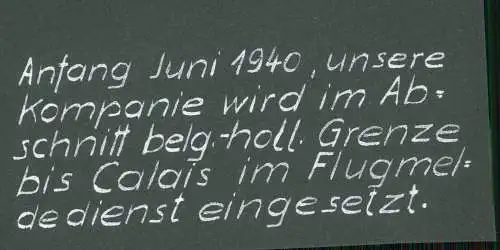 Anfang Juni 1940, unsere
Kompanie wird im Ab=
schnitt belg.-holl. Grenze
bis Calais im Flugmel=
dedienst eingesetzt.